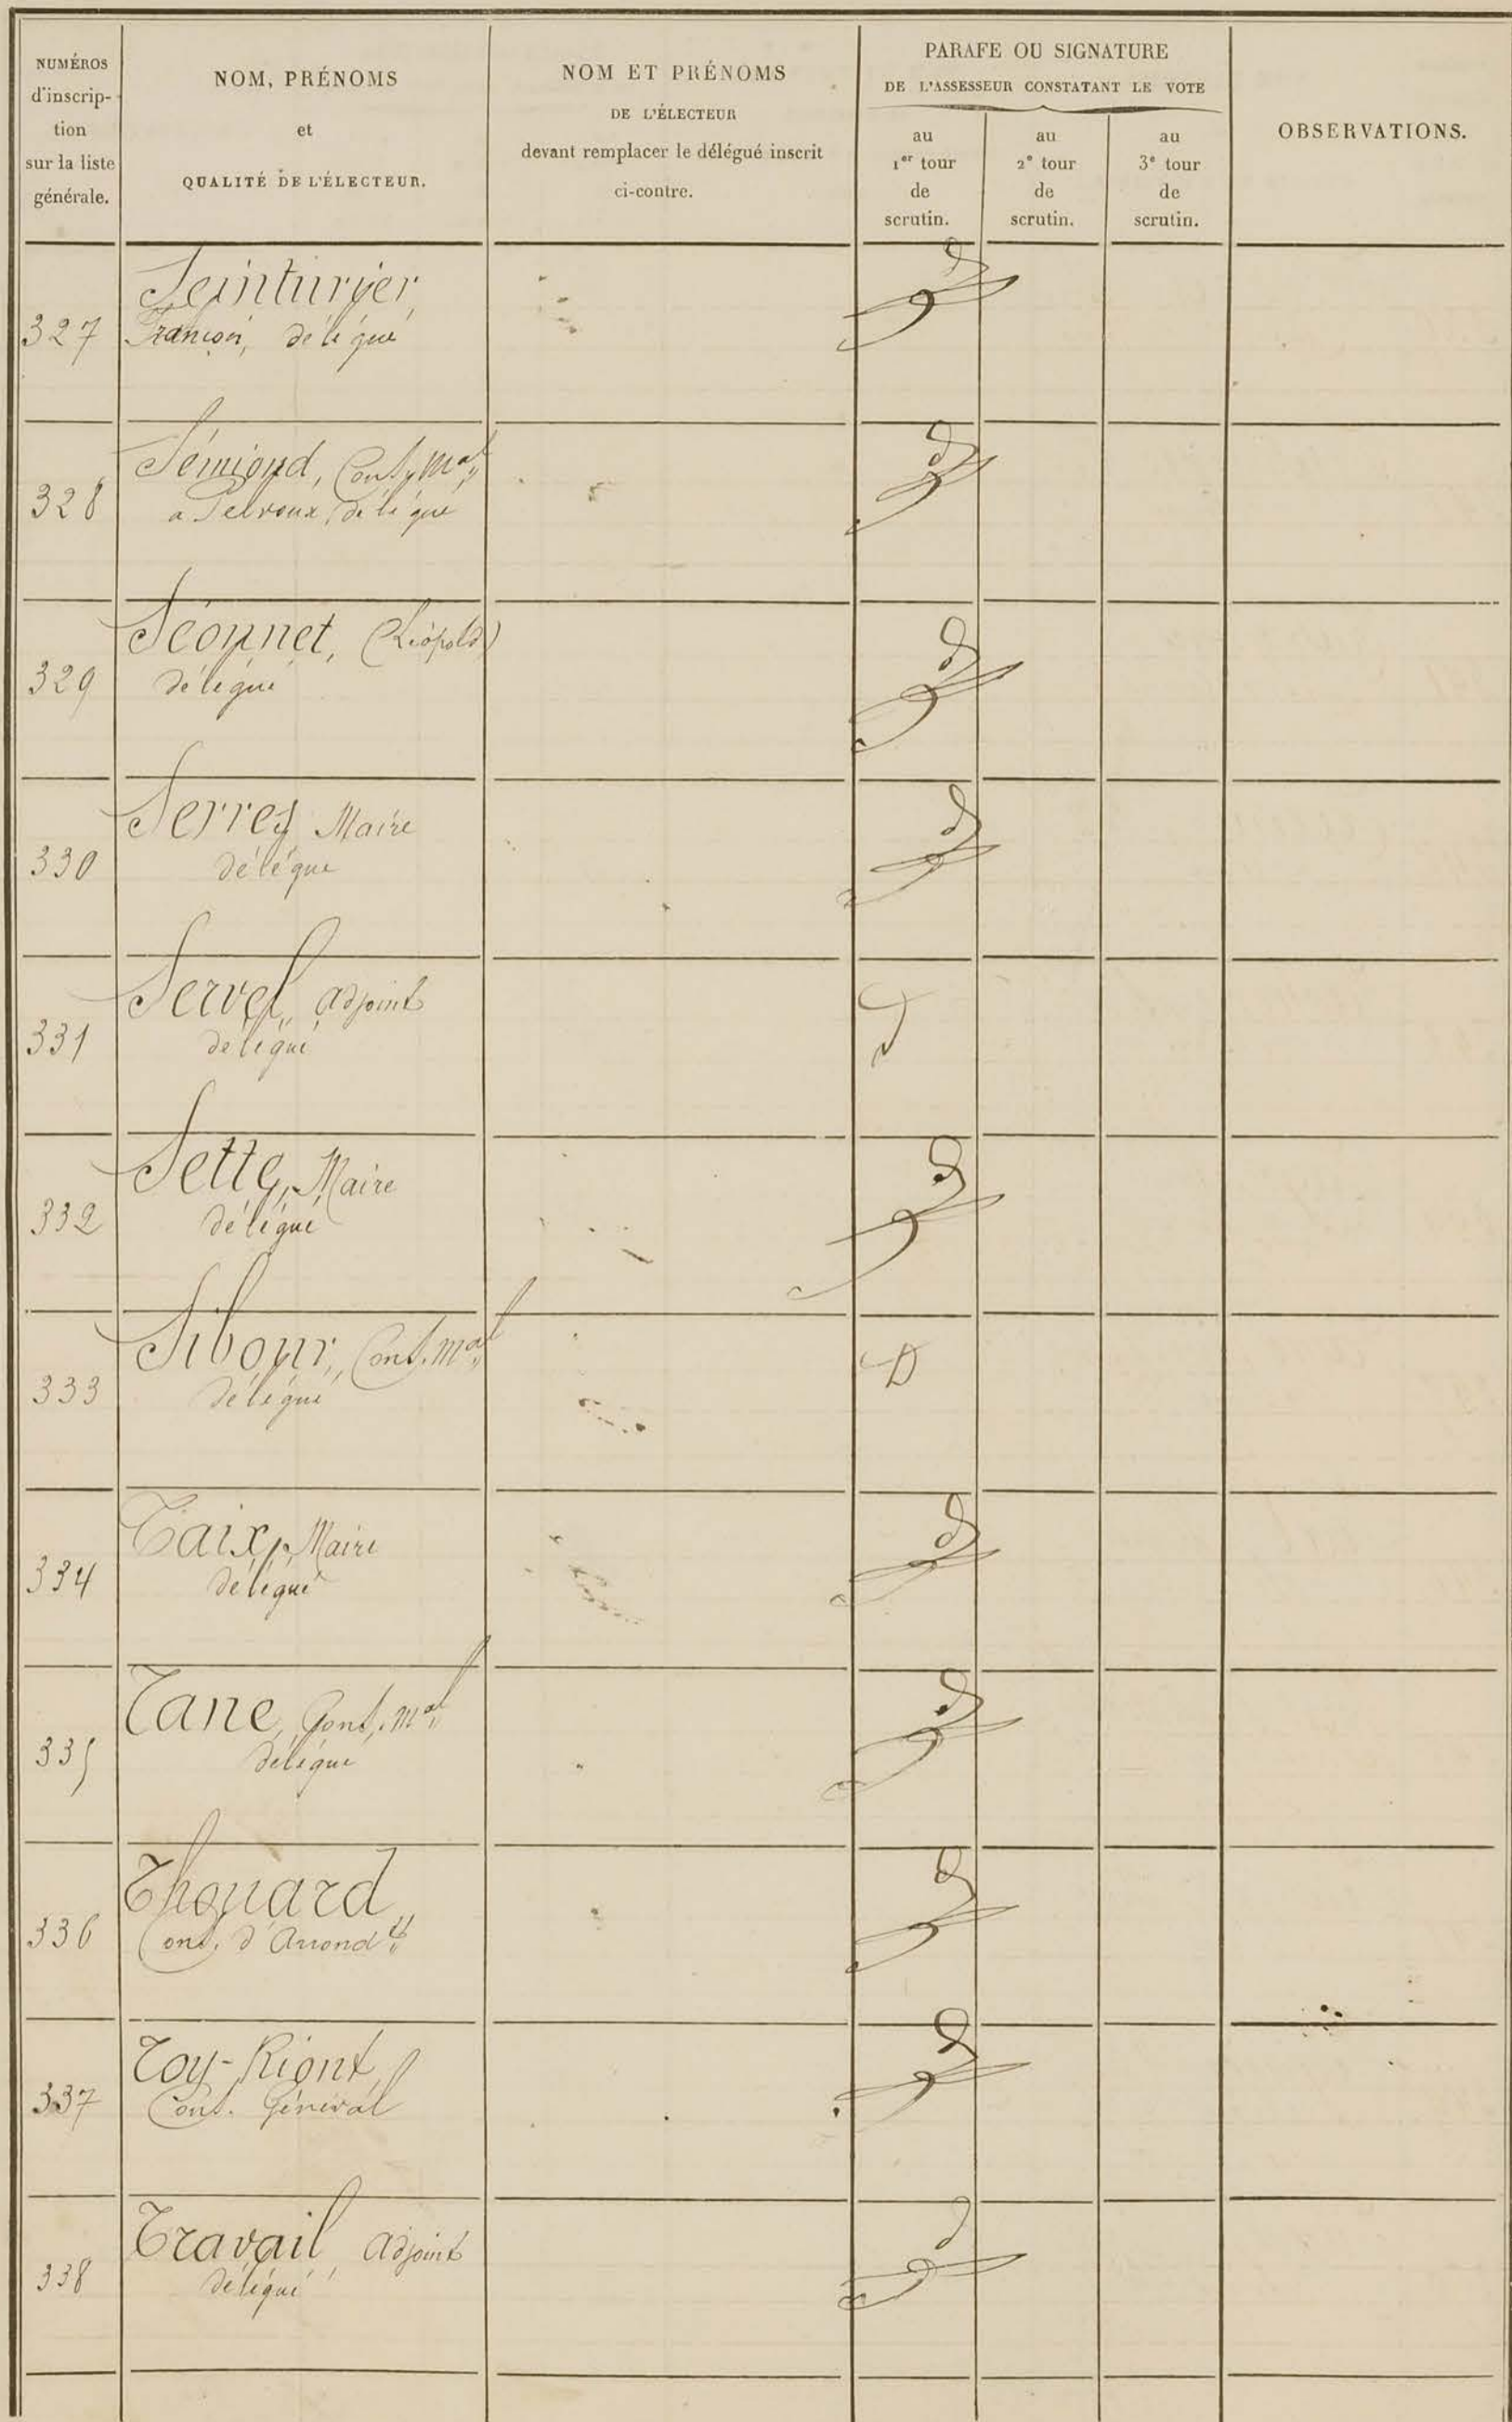 NUMÉROS
d'inscrip-
tion
sur la liste
générale.
NOM, PRÉNOMS
et
QUALITÉ DE L'ÉLECTEUR.
NOM ET PRÉNOMS
DE L'ÉLECTEUR
devant remplacer le délégué inscrit
ci-contre.
PARAFE OU SIGNATURE
DE L'ASSESSEUR CONSTATANT LE VOTE
au
1er tour
de
scrutin.
au
2e tour
de
scrutin.
au
3e tour
de
scrutin.
OBSERVATIONS.
Seinturier,
327 François, délégué
Sémiond, Cons. Mal,
328 a Pelvoux, délégué
Séonnet, (Léopold)
329 délégué
Serres Maire
330 délégué
Servel, adjoint
331 délégué
Sette, Maire
332 délégué
Sibour, Cons. Mal,
333 délégué
Taix, Maire
334 délégué
Tane, Cons. Mal,
335 délégué
Thouard,
336 Cons. d'Arrondt,
Toy-Riont,
337 Cons. Général
Travail, adjoint
338 délégué